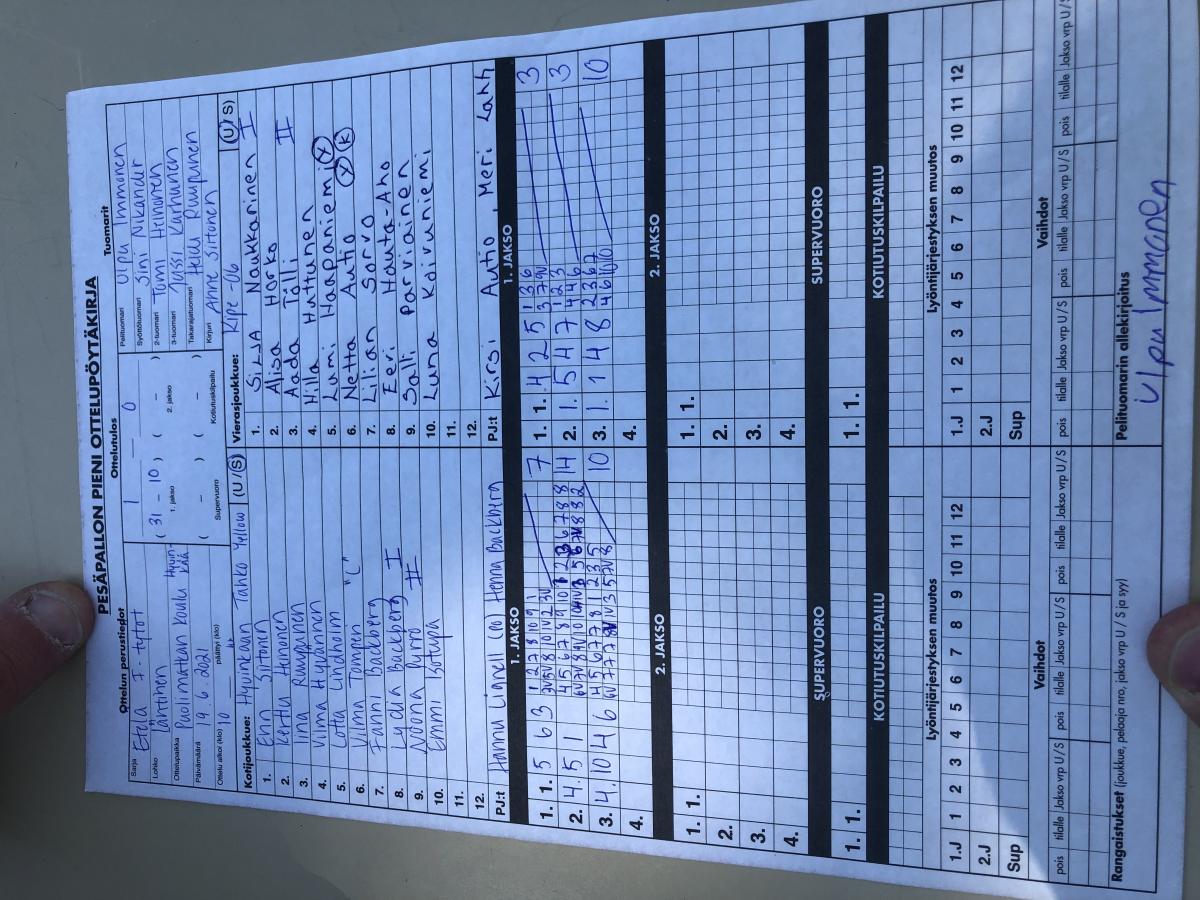 PESÄPALLON PIENI OTTELUPÖYTÄKIRJA
Ottelun perustiedot
Sarja Etelä F-tytöt
Lohko Läntinen
Ottelupaikka Puolimatkan koulu Hyvinkää
Päivämäärä 19.6.2021
Ottelu alkoi (klo) 10 päättyi (klo)
Ottelutulos
1 – 0
( 31 – 10 ) ( – )
1. jakso 2. jakso
( – ) ( – )
Supervuoro Kotiutuskilpailu
Tuomarit
Pelituomari Ulpu Immonen
Syöttötuomari Simi Nikander
2-tuomari Tomi Heinonen
3-tuomari Jussi Karhunen
Takarajatuomari Helu Ruupunen
Kirjuri Anne Siitonen
Kotijoukkue: Hyvinkään Tahko Yellow (U/S)
1. Enni Siitonen
2. Kerttu Heinonen
3. Iina Ruupunen
4. Vilma Hyvönnen
5. Lotta Lindholm
6. Vilma Tompen "C"
7. Fanni Backberg
8. Lydia Backberg I
9. Noona Pyrrö II
10. Emmi Isotupa
11.
12.
PJ:t Hannu Lignell (00) Henna Backberg
Vierasjoukkue: Kipe -06 (U/S)
1. Silja Naukkarinen I
2. Alisa Harko
3. Aada Tölli II
4. Hilla Huttunen
5. Lumi Haapaniemi Y
6. Netta Autio Y K
7. Lilian Sorvo
8. Eeri Hauta-Aho
9. Salli Parviainen
10. Luna Koivuniemi
11.
12.
PJ:t Kirsi Autio, Meri Lahti
1. JAKSO
1. 1. 5 6 3 7
2. 4. 5 1 14
3. 4. 10 4 6 10
4.
1. JAKSO
1. 1. 4 2 5 3
2. 1. 5 4 7 3
3. 1. 1 4 8 10
4.
2. JAKSO
1. 1.
2.
3.
4.
2. JAKSO
1. 1.
2.
3.
4.
SUPERVUORO
1. 1.
SUPERVUORO
1. 1.
KOTIUTUSKILPAILU
KOTIUTUSKILPAILU
Lyöntijärjestyksen muutos
1.J 1 2 3 4 5 6 7 8 9 10 11 12
2.J
Sup
Lyöntijärjestyksen muutos
1.J 1 2 3 4 5 6 7 8 9 10 11 12
2.J
Sup
Vaihdot
pois tilalle Jakso vrp U/S pois tilalle Jakso vrp U/S pois tilalle Jakso vrp U/S
Vaihdot
pois tilalle Jakso vrp U/S pois tilalle Jakso vrp U/S pois tilalle Jakso vrp U/S
Rangaistukset (joukkue, pelaaja nro, jakso vrp U / S ja syy)
Pelituomarin allekirjoitus
Ulpu Immonen